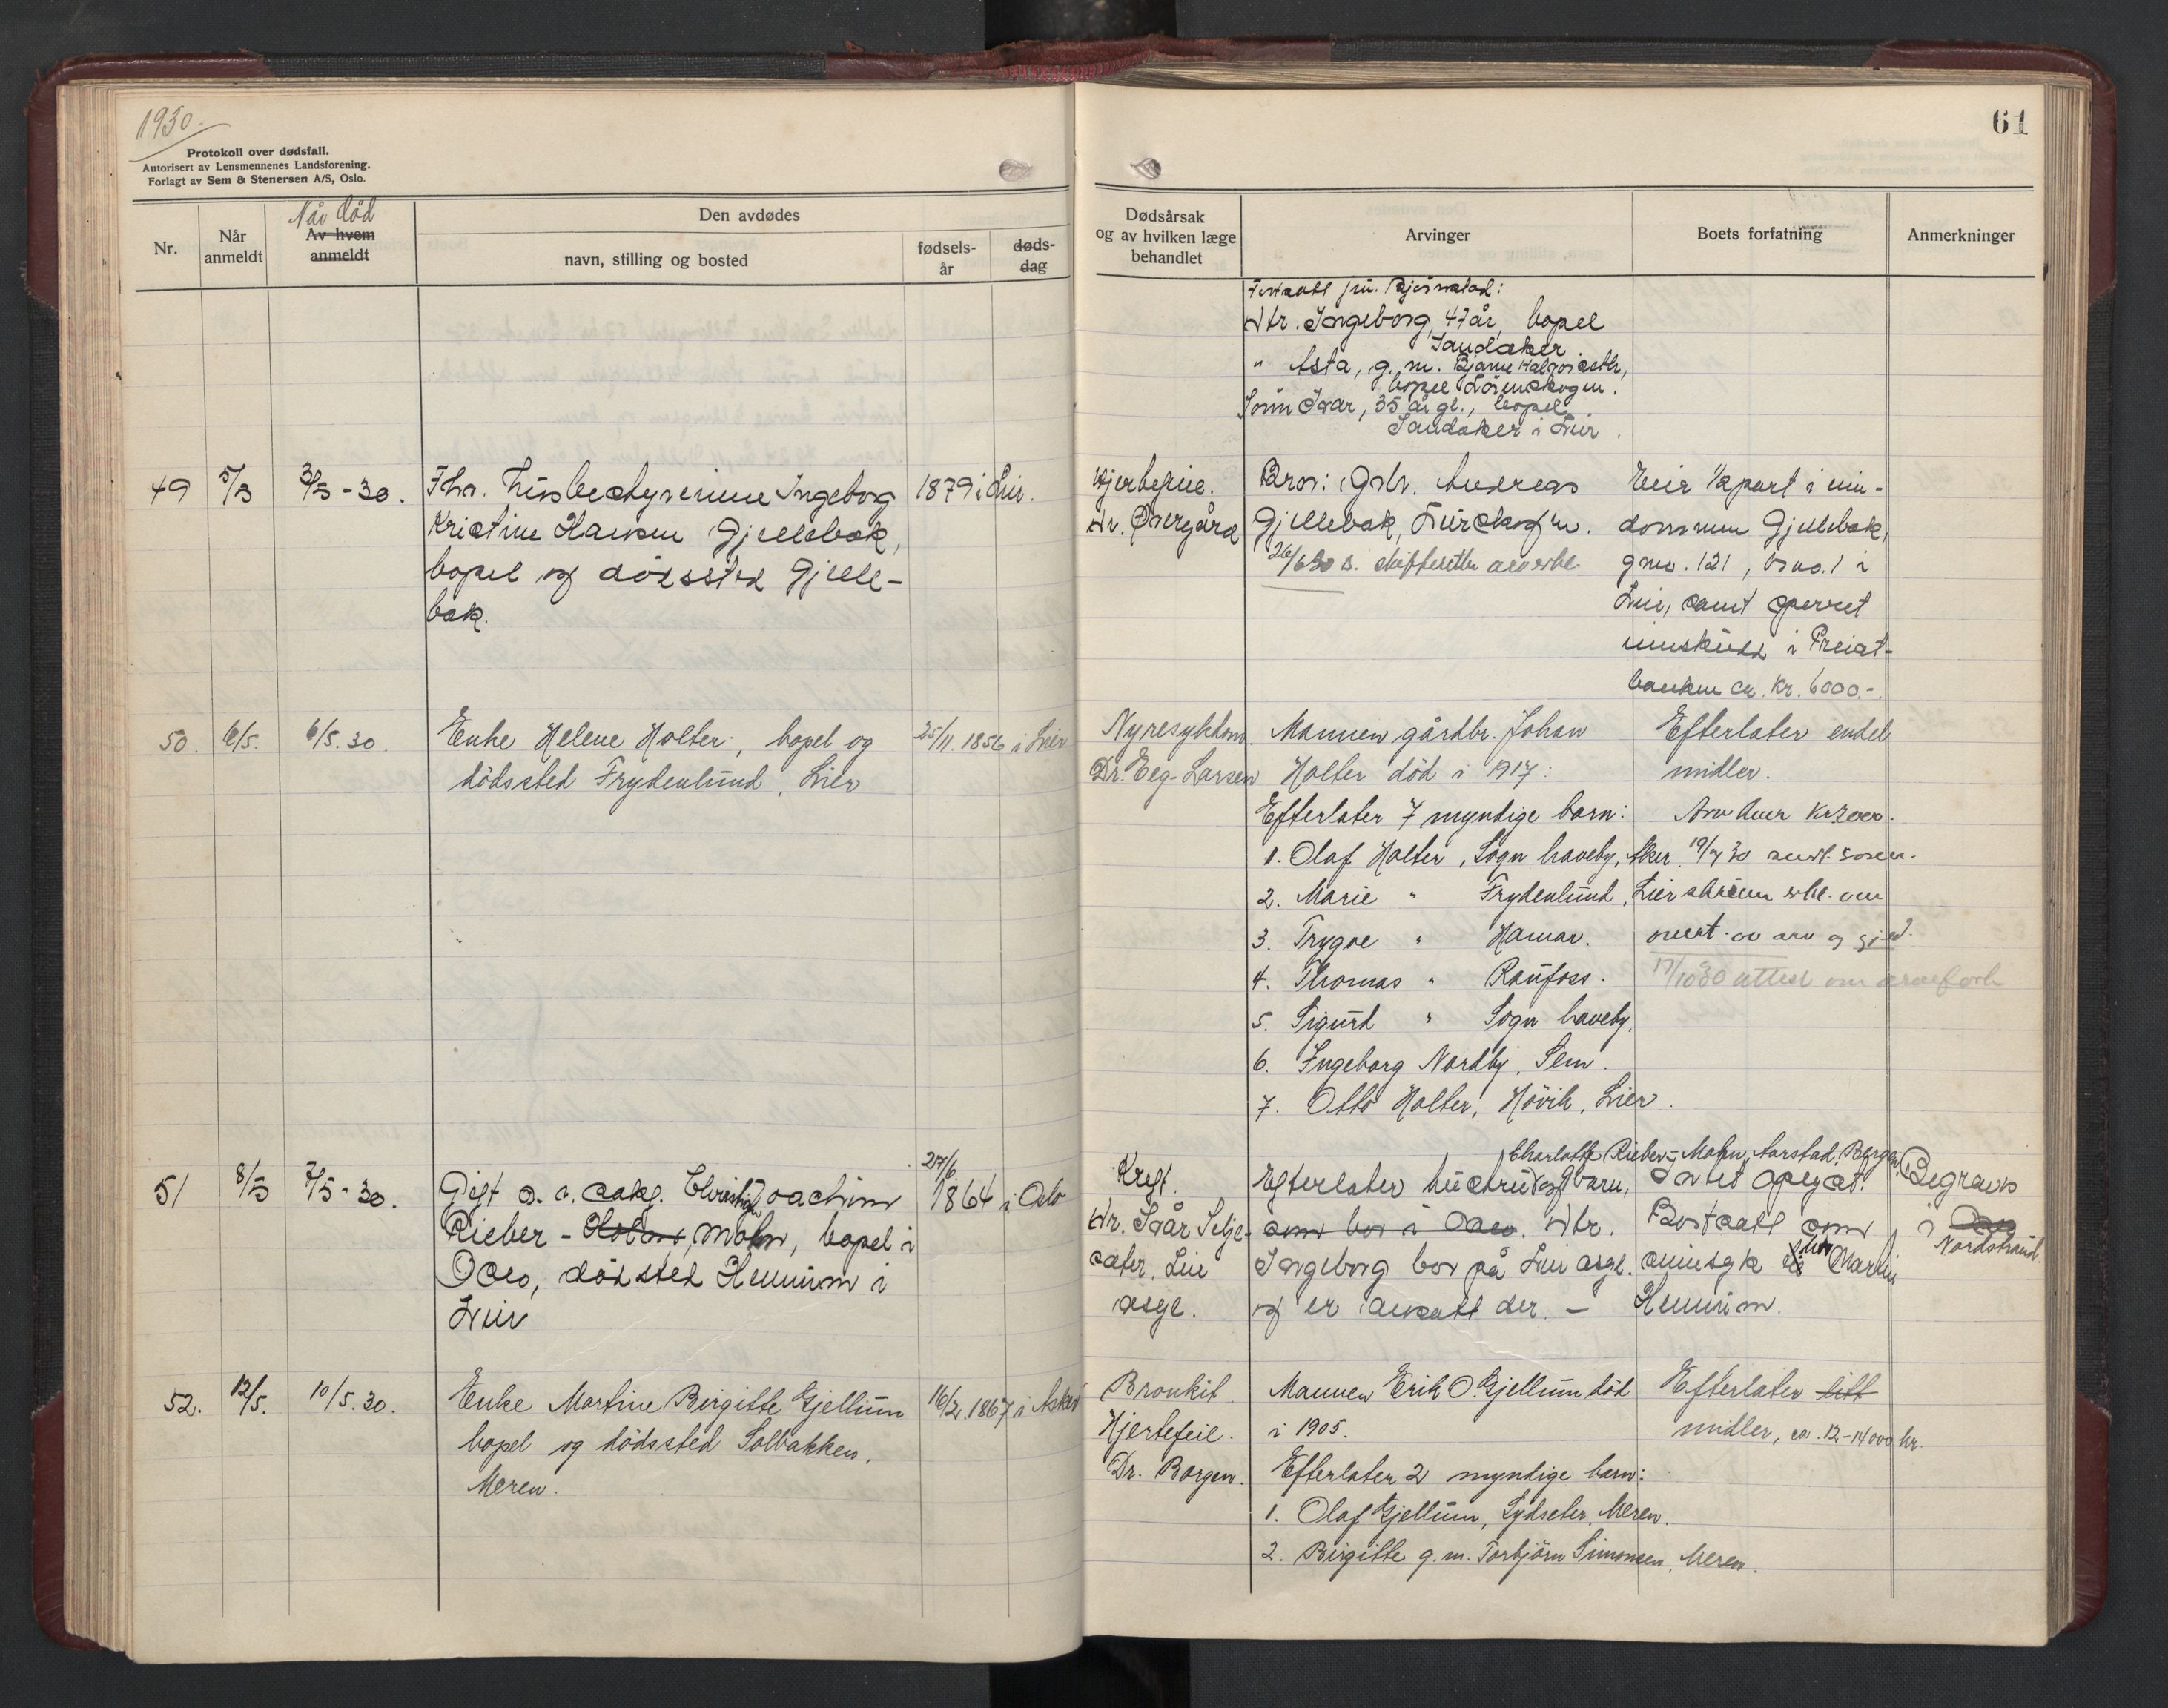 1930.
Protokoll over dødsfall.
Autorisert av Lensmennenes Landsforening.
Forlagt av Sem & Stenersen A/S, Oslo.
61
Nr.
Når anmeldt
Når död
Av hvem anmeldt
Den avdødes
navn, stilling og bosted
fødsels-
år
døds-
dag
Dødsårsak
og av hvilken læge
behandlet
Arvinger
Boets forfatning
Anmerkninger
Dtr. Ingeborg, 47 år, bopel
Sandaker
" Asta, g. m. Bjarne
bopel Lörenskogen.
Sönn Ivar, 35 år gl., bopel
Sandaker i Lier.
49 5/5 3/5-30.
Fhv. husbestyrerinne Ingeborg
Kristine Hansen Gjellebæk,
bopel og dödssted Gjelle-
bæk.
1879 i Lier.
Hjertefeil.
Dr. Övergård
Bror: Gbr. Andreas
Gjellebæk, Lierskogen.
26/6 30 B. skifteretten
Eier 1/2 part i eien-
dommen Gjellebæk,
gno. 121, bno. 1 i
Lier, samt sperret
innskudd i Privat-
banken ca. kr. 6000.-
50. 6/5. 6/5.30.
Enke Helene Holter, bopel og
dödssted Frydenlund, Lier
25/11.1856 i Lier
Nyresykdom.
Dr. Eeg-Larsen
Mannen gårdbr. Johan
Holter död i 1917:
Efterlater 7 myndige barn:
1. Olaf Holter, Sogn haveby, Aker.
2. Marie " Frydenlund, Lier
3. Trygve " Hamar.
4. Thomas " Raufoss.
5. Sigurd " Sogn haveby.
6. Ingeborg Nordby, Sem.
7. Otto Holter, Hövik, Lier.
Efterlater endel
midler.
19/7 30
17/10 30 attest om
51 8/5 7/5-30.
Gift o. r. sakf. Christian Joachim
Rieber - Mohn, bopel i
Oslo, dödssted Hennum i
Lier
27/6
1864 i Oslo
Kreft.
Dr. Ivar Selje-
sæter, Lier
asyl.
Charlotte Rieber-Mohn, Aarstad, Bergen
Efterlater hustru og barn,
som bor i Oslo. Dtr.
Ingeborg bor på Lier asyl.
og er ansatt der. -
Intet opgat.
Bortsatt som
sinnsyk hos Martin
Hennum.
Begraves
i Oslo
Nordstrand.
52. 12/5. 10/5.30.
Enke Martine Birgitte Gjellum
bopel og dödssted Solbakken,
Meren.
16/2.1867 i Asker
Bronkit.
Hjertefeil.
Dr. Borgen.
Mannen Erik O. Gjellum död
i 1905.
Efterlater 2 myndige barn:
1. Olaf Gjellum, Sydseter, Meren.
2. Birgitte g. m. Torbjörn Simonsen, Meren.
Efterlater litt
midler, ca. 12-14000 kr.